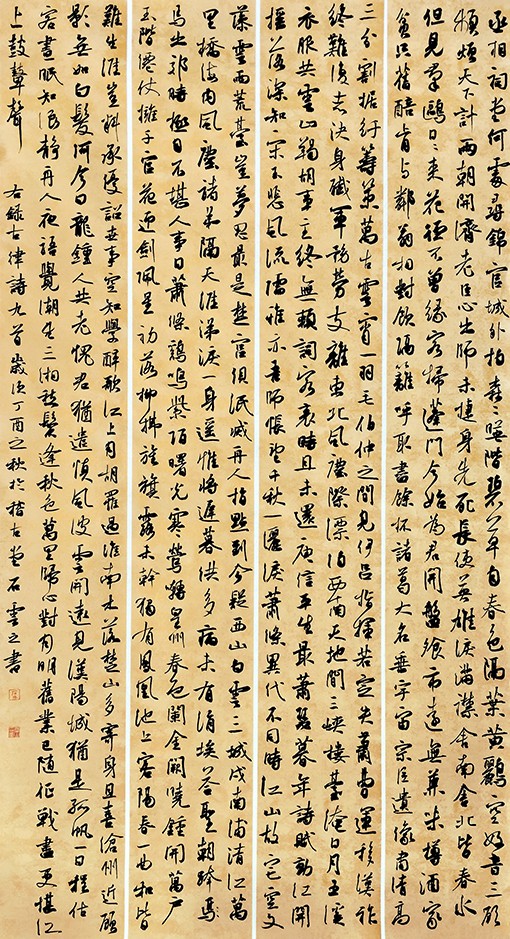 丞相祠堂何處尋錦官城外柏森々暎階碧草自春色隔葉黃鸝空好音三顧
頻煩天下計兩朝開濟老臣心出師未捷身先死長使英雄淚滿襟舍南舍北皆春水
但見群鷗日日來花徑不曾緣客掃蓬門今始為君開盤飧市遠無兼味樽酒家
貧只舊醅肯與鄰翁相對飲隔籬呼取盡餘杯諸葛大名垂宇宙宗臣遺像肅清高
三分割據紆籌策萬古雲霄一羽毛伯仲之間見伊呂指揮若定失蕭曹運移漢祚
終難復志決身殲軍務勞支離東北風塵際漂泊西南天地間三峽樓臺淹日月五溪
衣服共雲山羯胡事主終無賴詞客哀時且未還庾信平生最蕭瑟暮年詩賦動江關
搖落深知宋玉悲風流儒雅亦吾師悵望千秋一灑淚蕭條異代不同時江山故宅空文
藻雲雨荒臺豈夢思最是楚宮俱泯滅舟人指點到今疑西山白雪三城戍南浦清江萬
里橋海內風塵諸弟隔天涯涕淚一身遙惟將遲暮供多病未有涓埃答聖朝跨
馬出郊時極目不堪人事日蕭條鷄鳴紫陌曙光寒鶯囀皇州春色闌金闕曉鍾開萬戶
玉階僊仗擁千官花迎劍佩星初落柳拂旌旗露未乾獨有鳳凰池上客陽春一曲和皆
難生涯豈料承優詔世事空知學醉歌江上月胡雁過淮南木落楚山多寄身且喜滄州近顧
影無如白髮何今日龍鍾人共老愧君猶遣慎風波雲開遠見漢陽城猶是孤帆一日程估
客晝眠知浪靜舟人夜語覺潮生三湘愁鬢逢秋色萬里歸心對月明舊業已隨征戰盡更堪江
上鼓鼙聲
右錄古律詩九首歲次丁酉之秋於稽古堂石雲之書